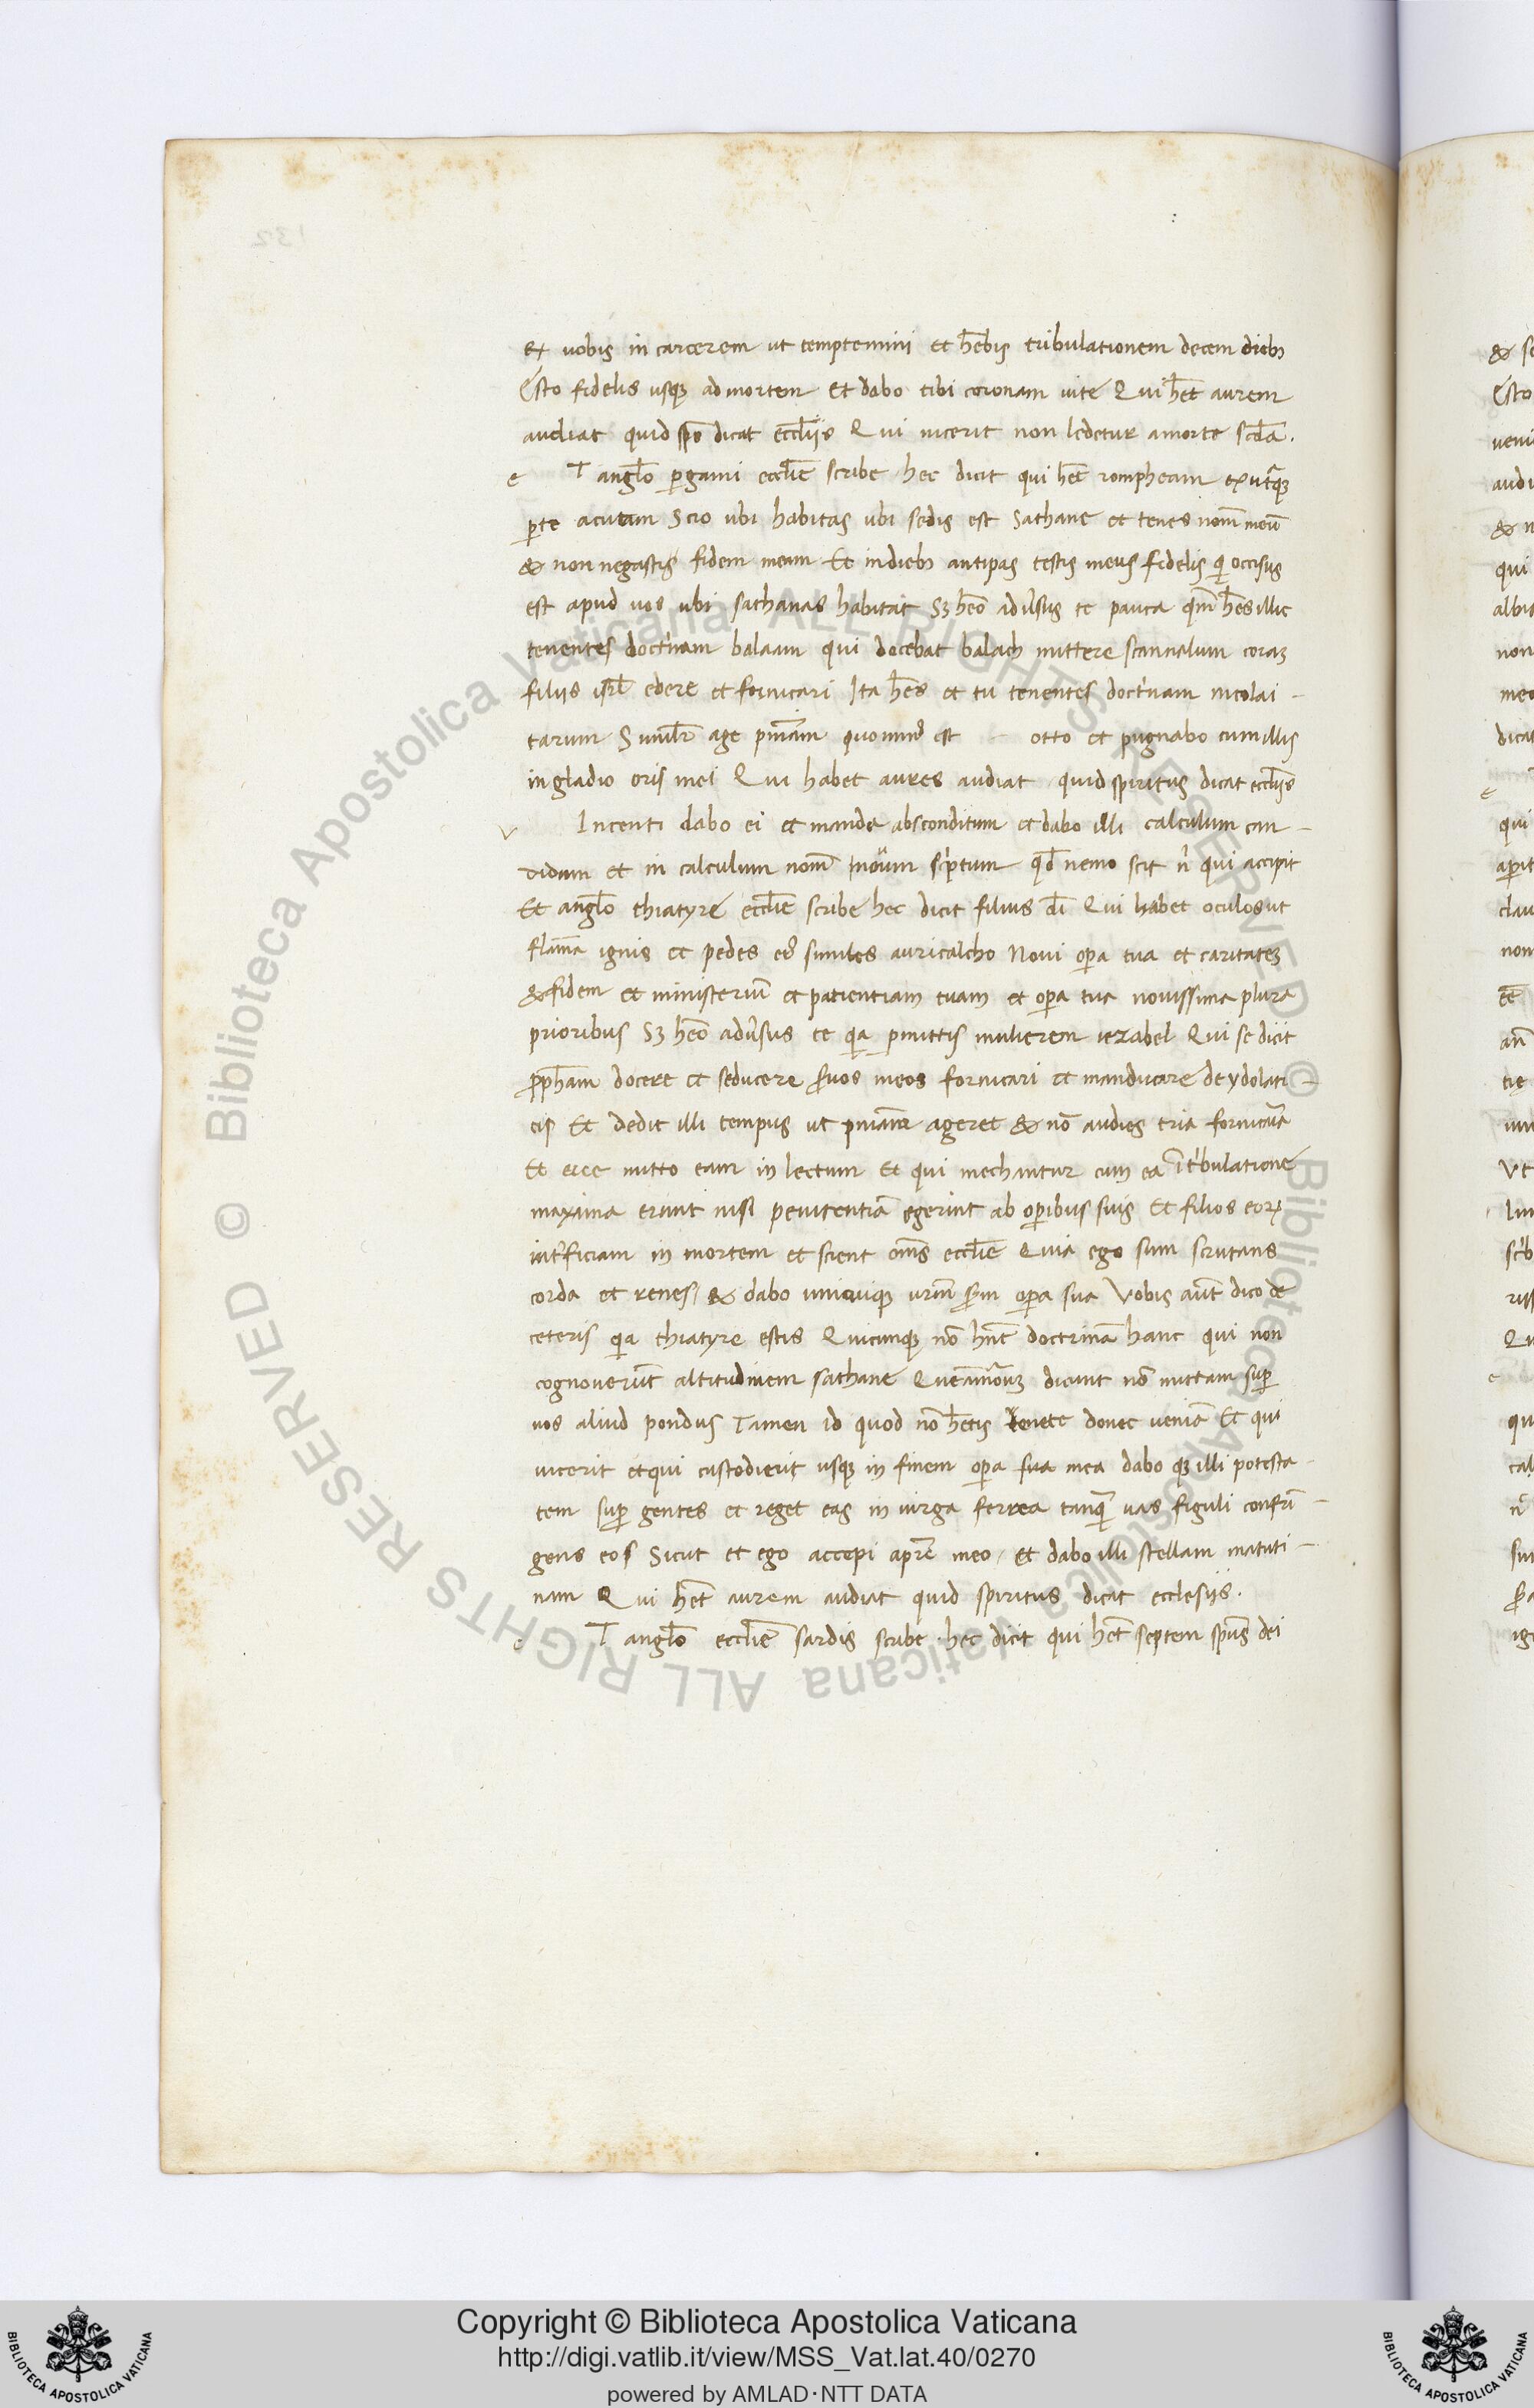 ex uobis in carcerem ut temptemini et hēbis tribulationem decem dieb;
Esto fidelis usq; ad mortem Et dabo tibi coronam uite Qui hēt aurem
audiat quid sp̄s dicat eccl̄iis Qui uicerit non ledetur a morte sc̄da.
e T angl̄o p̱gami eccl̄ie scribe hec dicit qui hēt rompheam ex utraq;
p̱te acutam Scio ubi habitas ubi sedis est Sathane et tenes nom̄ meū
& non negastis fidem meam Et in dieb; antipas testis meus fidelis qi occisus
est apud uos ubi sathanas habitat Sꝫ heō adūsus te pauca qm̄ hēs illic
tenentes doct'nam balaam qui docebat balach mittere scannalum coraꝫ
filiis isrl̄ edere et fornicari Ita hēs et tu tenentes doct'nam nicolai-
tarum Simil'r age pn̄iam quominꝰ est otto et pugnabo cum illis
in gladio oris mei Qui habet aures audiat quid spiritus dicat eccl̄iis
v Incenti dabo ei et manda absconditum et dabo illi calculum can-
didum et in calculum nom̄ nouum sc'ptum qd̄ nemo scit n' qui accipit
Et angl̄o thiatyre eccl̄ie scribe hec dicit filius dī Qui habet oculos ut
flam̄a ignis et pedes eiꝰ similes auricalcho Noui op̱a tua et caritateꝫ
& fidem et ministeriū et patientiam tuam et op̱a tua nouissima plura
prioribus Sꝫ heō adūsus te qia p̱mittis mulierem iezabel Qui se dicit
ꝓph̄am docere et seducere s̄uos meos fornicari et manducare de ydolati-
cis Et dedit illi tempus ut pn̄iam ageret & nō audies tria fornicat'a
Et ecce mitto eam in lectum Et qui mechantur cum ea ī t'bulatione
maxima erunt nisi penitentiā egerint ab op̱ibus suis Et filios eoꝝ
int'ficiam in mortem et scient om̄s eccl̄ie Quia ego sum scrutans
corda et renes & dabo unicuiq; ur̄m s̄m op̱a sua Vobis aūt dico de
ceteris qia thiatyre estis Quicunq; nō hn̄t doctrinā hanc qui non
cognouerūt altitudinem sathane Queammoduꝫ dicunt nō mittam sup̱
uos aliud pondus Tamen id quod nō hētis tenete donec ueniā Et qui
uicerit et qui custodierit usq; in finem op̱a sua mea dabo q; illi potesta-
tem sup̱ gentes et reget eas in uirga ferrea tanq̄ uas figuli confri-
gens eos Sicut et ego accepi a pr̄e meo Et dabo illi stellam matuti-
nam Qui hēt aurem audiat quid spiritus dicat ecclesiis.
e T angl̄o eccl̄ie sardis scribe hec dicit qui hēt septem sp̄us dei
Copyright © Biblioteca Apostolica Vaticana
http://digi.vatlib.it/view/MSS_Vat.lat.40/0270
powered by AMLAD·NTT DATA